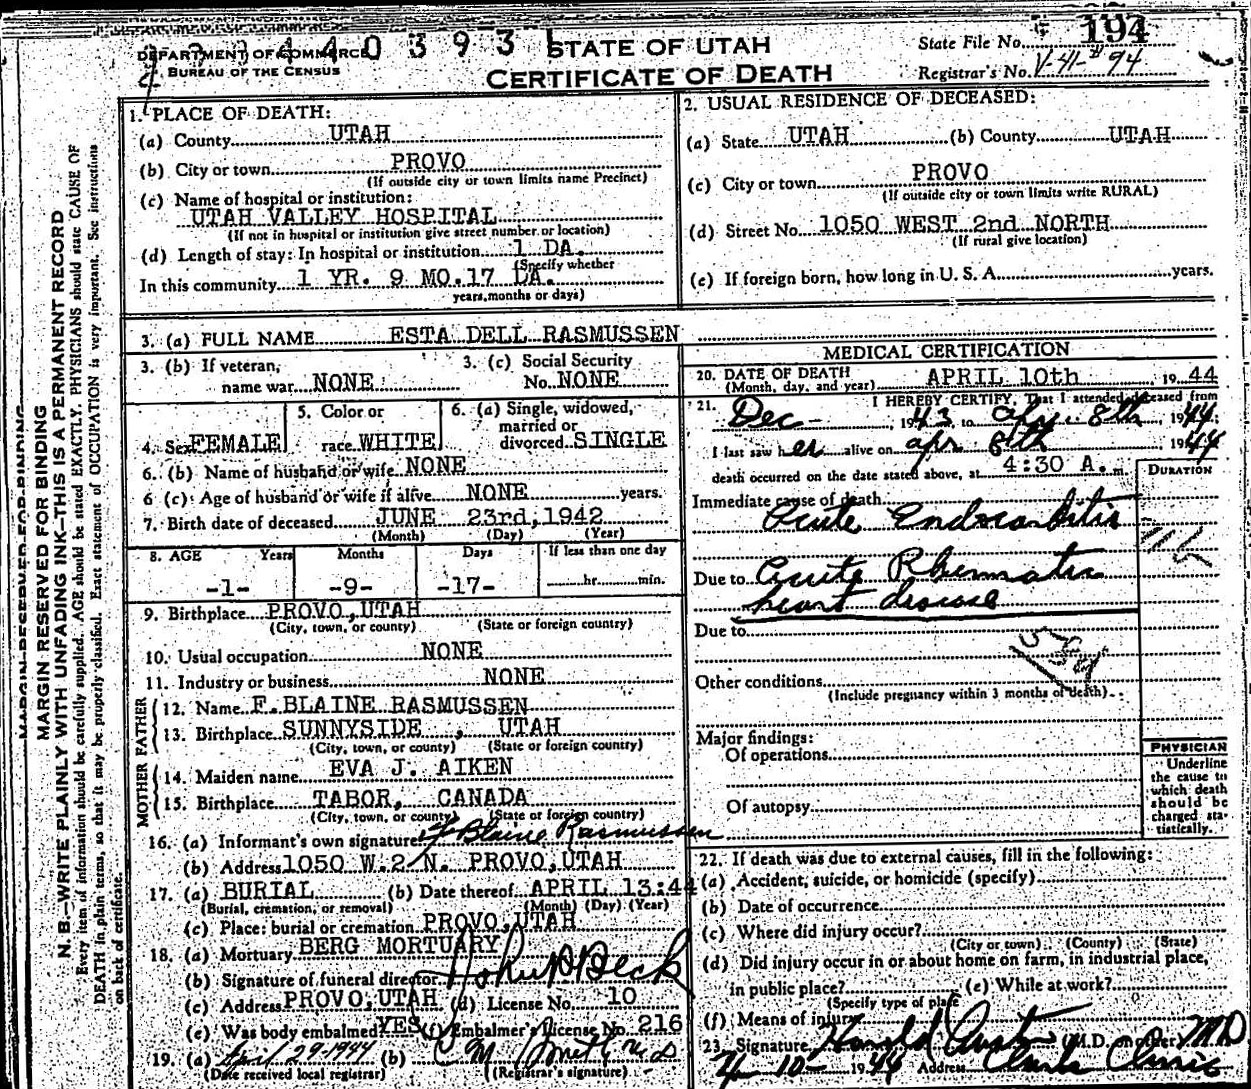 440393
DEPARTMENT OF COMMERCE
BUREAU OF THE CENSUS
STATE OF UTAH
CERTIFICATE OF DEATH
State File No. 194
Registrar's No. V-41-#94
MARGIN RESERVED FOR BINDING
N. B.—WRITE PLAINLY WITH UNFADING INK—THIS IS A PERMANENT RECORD
Every item of information should be carefully supplied. AGE should be stated EXACTLY. PHYSICIANS should state CAUSE OF
DEATH in plain terms, so that it may be properly classified. Exact statement of OCCUPATION is very important. See instructions
on back of certificate.
1. PLACE OF DEATH:
(a) County UTAH
(b) City or town PROVO
(If outside city or town limits name Precinct)
(c) Name of hospital or institution:
UTAH VALLEY HOSPITAL
(If not in hospital or institution give street number or location)
(d) Length of stay: In hospital or institution 1 DA.
(Specify whether
In this community 1 YR. 9 MO. 17 DA.
years, months or days)
2. USUAL RESIDENCE OF DECEASED:
(a) State UTAH (b) County UTAH
(c) City or town PROVO
(If outside city or town limits write RURAL)
(d) Street No. 1050 WEST 2nd NORTH
(If rural give location)
(e) If foreign born, how long in U. S. A. years.
3. (a) FULL NAME ESTA DELL RASMUSSEN
3. (b) If veteran,
name war NONE
3. (c) Social Security
No. NONE
4. Sex FEMALE
5. Color or
race WHITE
6. (a) Single, widowed,
married or
divorced SINGLE
6. (b) Name of husband or wife NONE
6 (c) Age of husband or wife if alive NONE years.
7. Birth date of deceased JUNE 23rd, 1942
(Month) (Day) (Year)
8. AGE Years Months Days If less than one day
-1- -9- -17- hr. min.
9. Birthplace PROVO, UTAH
(City, town, or county) (State or foreign country)
10. Usual occupation NONE
11. Industry or business NONE
FATHER
12. Name F. BLAINE RASMUSSEN
13. Birthplace SUNNYSIDE, UTAH
(City, town, or county) (State or foreign country)
MOTHER
14. Maiden name EVA J. AIKEN
15. Birthplace TABOR, CANADA
(City, town, or county) (State or foreign country)
16. (a) Informant's own signature F Blaine Rasmussen
(b) Address 1050 W. 2 N. PROVO, UTAH
17. (a) BURIAL (b) Date thereof APRIL 13:44
(Burial, cremation, or removal) (Month) (Day) (Year)
(c) Place: burial or cremation PROVO, UTAH
18. (a) Mortuary BERG MORTUARY
(b) Signature of funeral director Beck
(c) Address PROVO, UTAH (d) License No. 10
(e) Was body embalmed YES (f) Embalmer's License No. 216
19. (a) April 29-1944 (b)
(Date received local registrar) (Registrar's signature)
MEDICAL CERTIFICATION
20. DATE OF DEATH
(Month, day, and year) APRIL 10th 19 44
21. I HEREBY CERTIFY, That I attended deceased from
Dec -, 1943 to apr. 8th, 1944
I last saw her alive on apr 8th 1944
death occurred on the date stated above, at 4:30 A. m.
DURATION
Immediate cause of death
Acute Endocarditis
Due to Acute Rhumatic
heart disease
Due to
Other conditions
(Include pregnancy within 3 months of death)
Major findings:
Of operations
Of autopsy
PHYSICIAN
Underline
the cause to
which death
should be
charged sta-
tistically.
22. If death was due to external causes, fill in the following:
(a) Accident, suicide, or homicide (specify)
(b) Date of occurrence
(c) Where did injury occur?
(City or town) (County) (State)
(d) Did injury occur in or about home on farm, in industrial place,
in public place? (e) While at work?
(Specify type of place
(f) Means of injury
23. Signature (M.D. or other) MD
4-10-1944 Address Clark Clinic